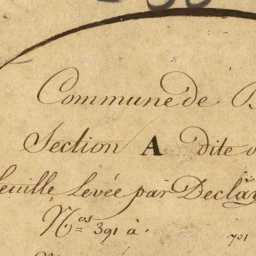 Commune de B
Section A dite d
feuille levée par Decla
N.os 391 à.
701